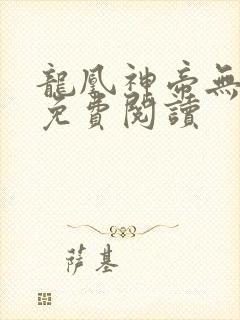 龍鳳神帝無
免費閱讀
萨基